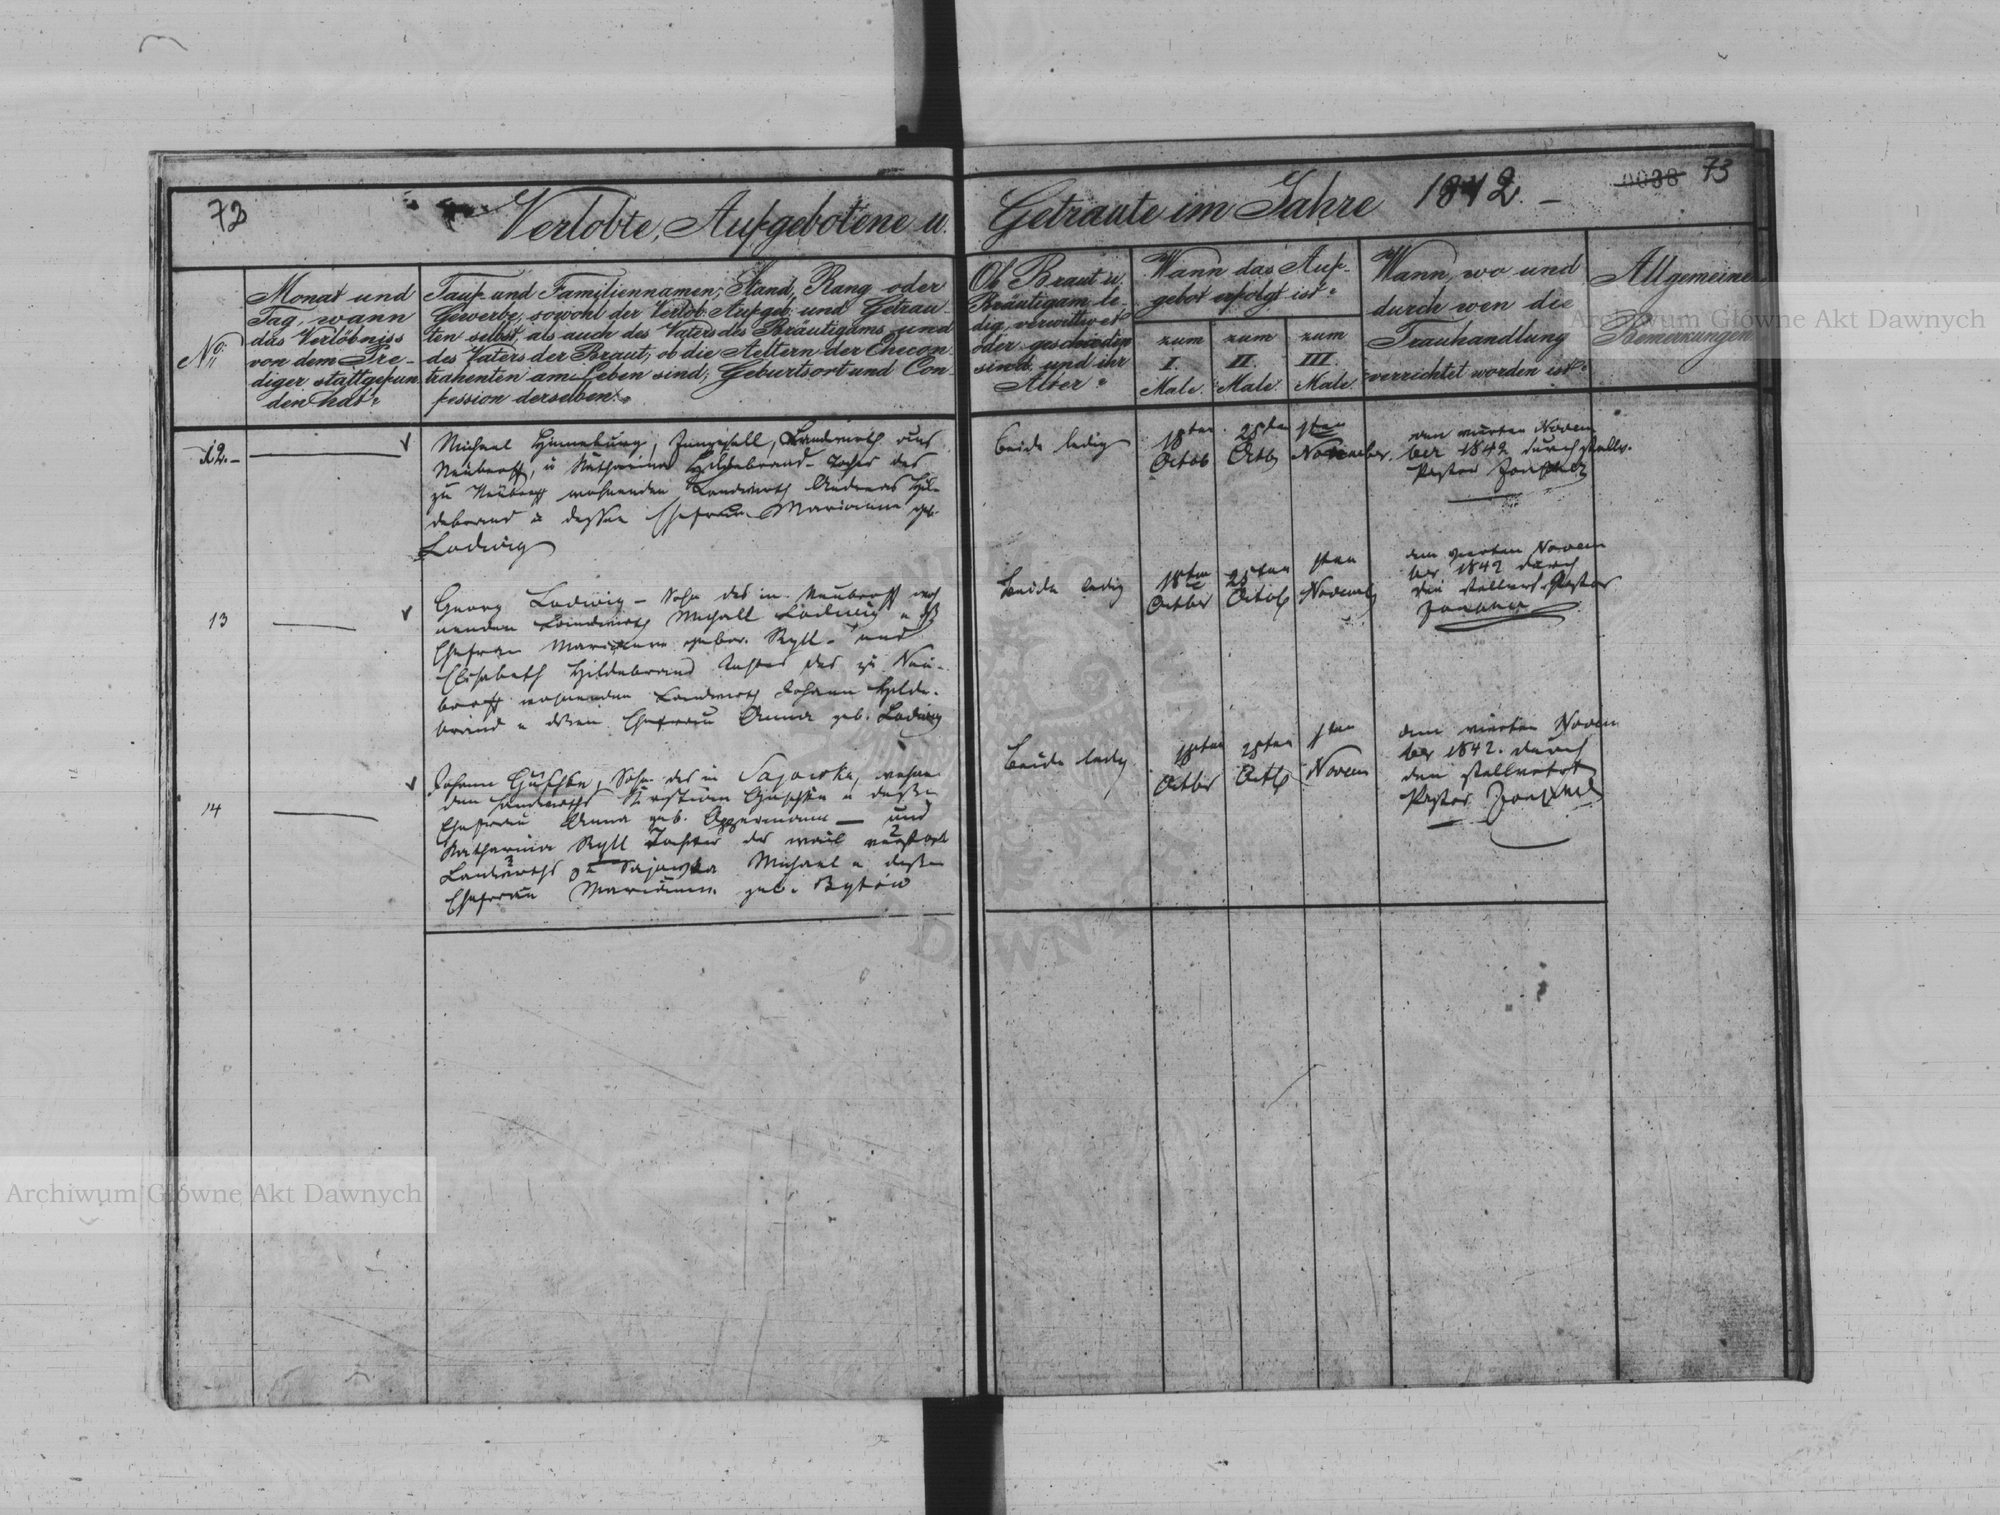 72
Verlobte, Aufgebotene u.
Getraute im Jahre 1842. –
0038 73
No.
Monat und
Tag, wann
das Verlöbniss
von dem Pre-
diger stattgefun
den hat.
Tauf- und Familiennamen, Stand, Rang oder
Gewerbe, sowohl der Verlob. Aufgeb. und Getrau-
ten selbst, als auch des Vaters des Bräutigams und
des Vaters der Braut, ob die Aeltern der Checon-
trahenten am Leben sind; Geburtsort und Con-
fession derselben.
Ob Braut u.
Bräutigam le-
dig, verwittwet
oder geschieden
sind und ihr
Alter
Wann das Auf-
gebot erfolgt ist
zum
I.
Male.
zum
II.
Male.
zum
III.
Male.
Wann, wo und
durch wen die
Trauhandlung
verrichtet worden ist
Allgemeine
Bemerkungen
12. –
Michael Junggesell, Landwirth aus
u Katharina Hildebrand Tochter des
zu wohnenden Landwirth Andreas Hil-
debrand u dessen Ehefrau Marianna geb.
Ladwig
beide ledig
18ten
Octob
25ten
Octb
1ten
November
den vierten Novem
ber 1842 durch stellv.
Pastor
13
Georg Ladwig – Sohn des in woh
nenden Landwirth Michael Ladwig u
Ehefrau Marianna gebor. Ryll – und
Elisabeth Hildebrand Tochter des zu Neu-
wohnenden Landwirth Johann Hilde-
brand u dessen Ehefrau Anna geb. Ladwig
beide ledig
18ten
Octber
25ten
Octob
1ten
Novemb
den vierten Novem
ber 1842 durch
den stellvert. Pastor
14
Johann Guschke, Sohn des in Sajowka, wohnen
den Landwirths Guschke u dessen
Ehefrau Anna geb. Oppermann – und
Katharina Ryll Tochter des weil verstorb
Landwirths Sajowka Michael u dessen
Ehefrau Marianna geb.
beide ledig
18ten
Octber
25ten
Octb
1ten
Novem
den vierten Novem
ber 1842. durch
den stellvertret
Pastor
Archiwum Główne Akt Dawnych
Archiwum Główne Akt Dawnych